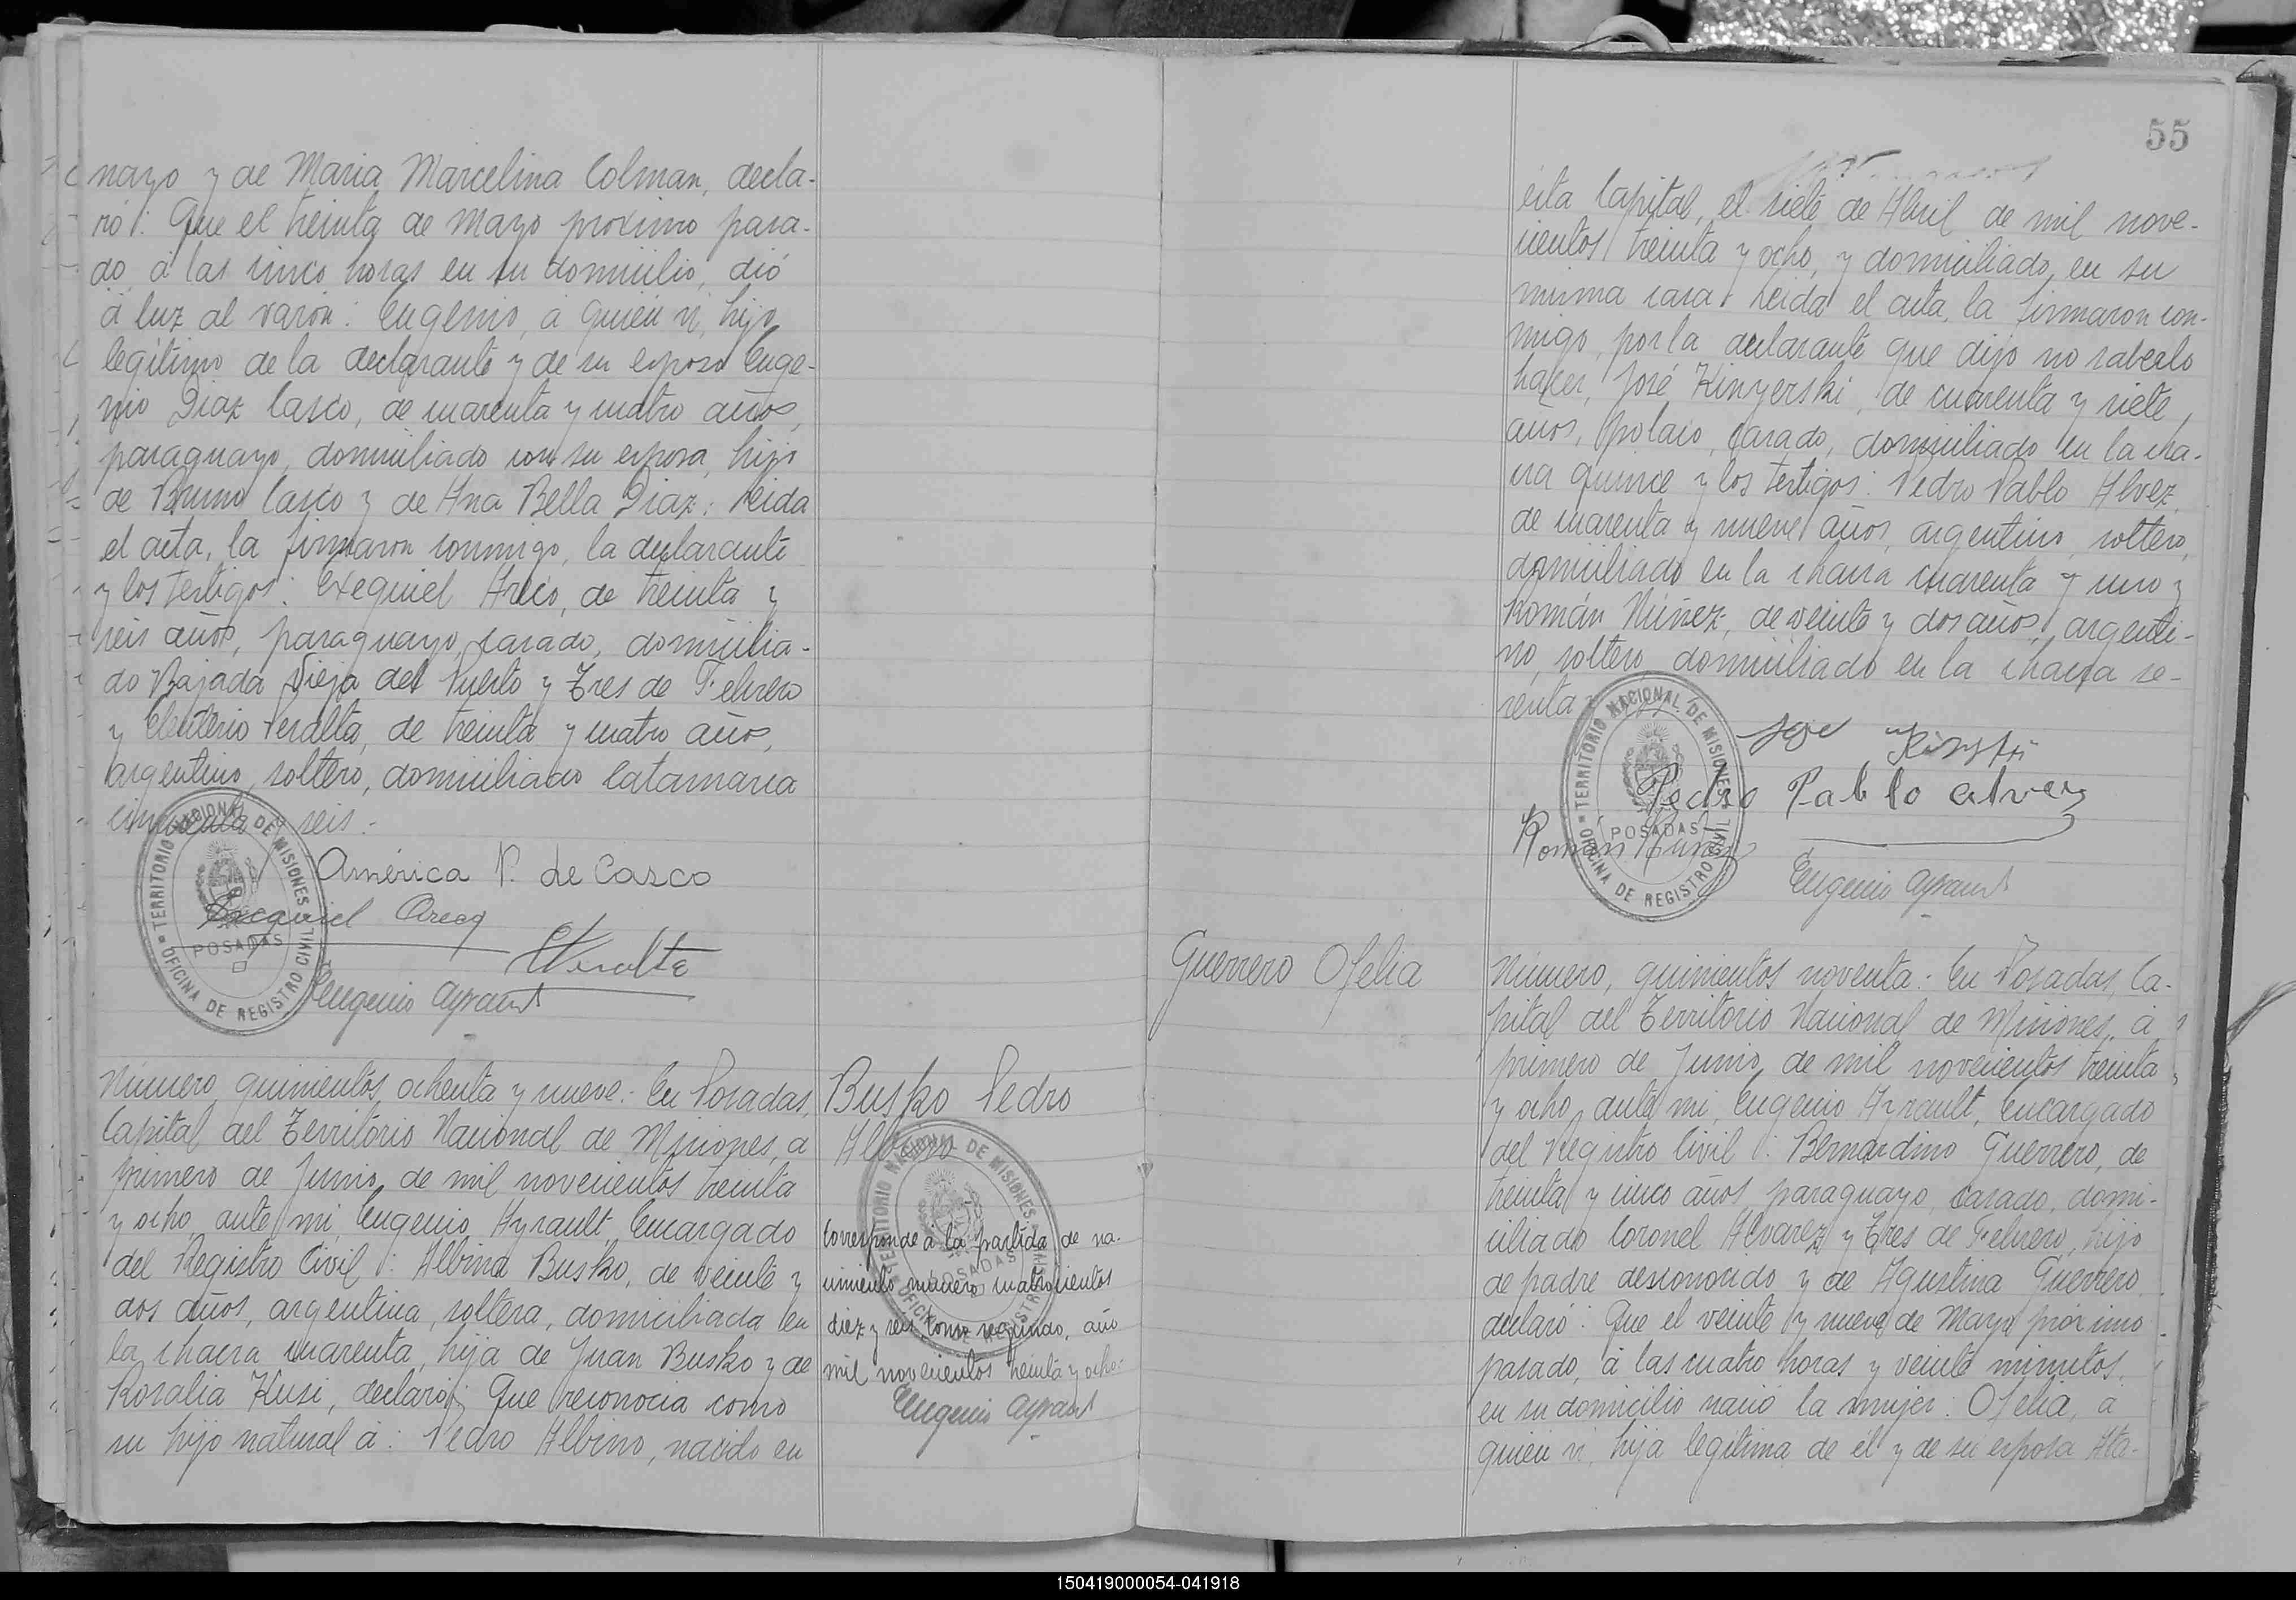 nayo y de Maria Marcelina Colman, decla-
ró: Que el treinta de Mayo próximo pasa-
do, á las cinco horas en su domicilio, dió
á luz al varón: Eugenio, á quién ví, hijo
legítimo de la declarante y de su esposo Euge-
nio Diaz Casco, de cuarenta y cuatro años,
paraguayo, domiciliado con su esposa, hijo
de Bruno Casco y de Ana Bella Diaz: Leida
el acta, la firmaron conmigo, la declarante
y los testigos: Exequiel Areco, de treinta y
seis años, paraguayo, casado, domicilia-
do Bajada Vieja del Puerto y Tres de Febrero
y Eleuterio Peralta, de treinta y cuatro años,
argentino, soltero, domiciliado Catamarca
cincuenta y seis.
América V. de Casco
Exequiel Areco
EPeralta
Eugenio Ayrault
TERRITORIO NACIONAL DE MISIONES
POSADAS
OFICINA DE REGISTRO CIVIL
Número, quinientos ochenta y nueve: En Posadas,
Capital del Territorio Nacional de Misiones, a
primero de Junio, de mil novecientos treinta
y ocho, ante mi, Eugenio Ayrault, Encargado
del Registro Civil: Albina Busko, de veinte y
dos años, argentina, soltera, domiciliada en
la chacra cuarenta, hija de Juan Busko y de
Rosalia Kusi, declaró: Que reconocia como
su hijo natural á: Pedro Albino, nacido en
Busko Pedro
Albino
TERRITORIO NACIONAL DE MISIONES
POSADAS
OFICINA DE REGISTRO CIVIL
Corresponde á la partida de na-
cimiento número cuatrocientos
diez y seis tomo segundo, año
mil novecientos treinta y ocho:
Eugenio Ayrault
55
ésta Capital, el siete de Abril de mil nove-
cientos treinta y ocho, y domiciliado, en su
misma casa: Leida el acta, la firmaron con-
migo, por la declarante que dijo no saberlo
hacer, José Kinyerski, de cuarenta y siete,
años, polaco, casado, domiciliado en la cha-
cra quince y los testigos: Pedro Pablo Alvez,
de cuarenta y nueve años, argentino, soltero,
domiciliado en la chacra cuarenta y uno y
Román Núñez, de veinte y dos años, argenti-
no, soltero, domiciliado en la chacra se-
senta
TERRITORIO NACIONAL DE MISIONES
POSADAS
OFICINA DE REGISTRO CIVIL
Pedro Pablo Alvez
Román Núñez
Eugenio Ayrault
Guerrero Ofelia
Número, quinientos noventa: En Posadas, Ca-
pital del Territorio Nacional de Misiones, á
primero de Junio, de mil novecientos treinta
y ocho, ante mi, Eugenio Ayrault, Encargado
del Registro Civil: Bernardino Guerrero, de
treinta y cinco años, paraguayo, casado, domi-
ciliado Coronel Alvarez y Tres de Febrero, hijo
de padre desconocido y de Agustina Guerrero,
declaró: Que el veinte y nueve de Mayo próximo
pasado, á las cuatro horas y veinte minutos,
en su domicilio nació la mujer: Ofelia, á
quién ví, hija legítima de él y de su esposa Ata-
150419000054-041918